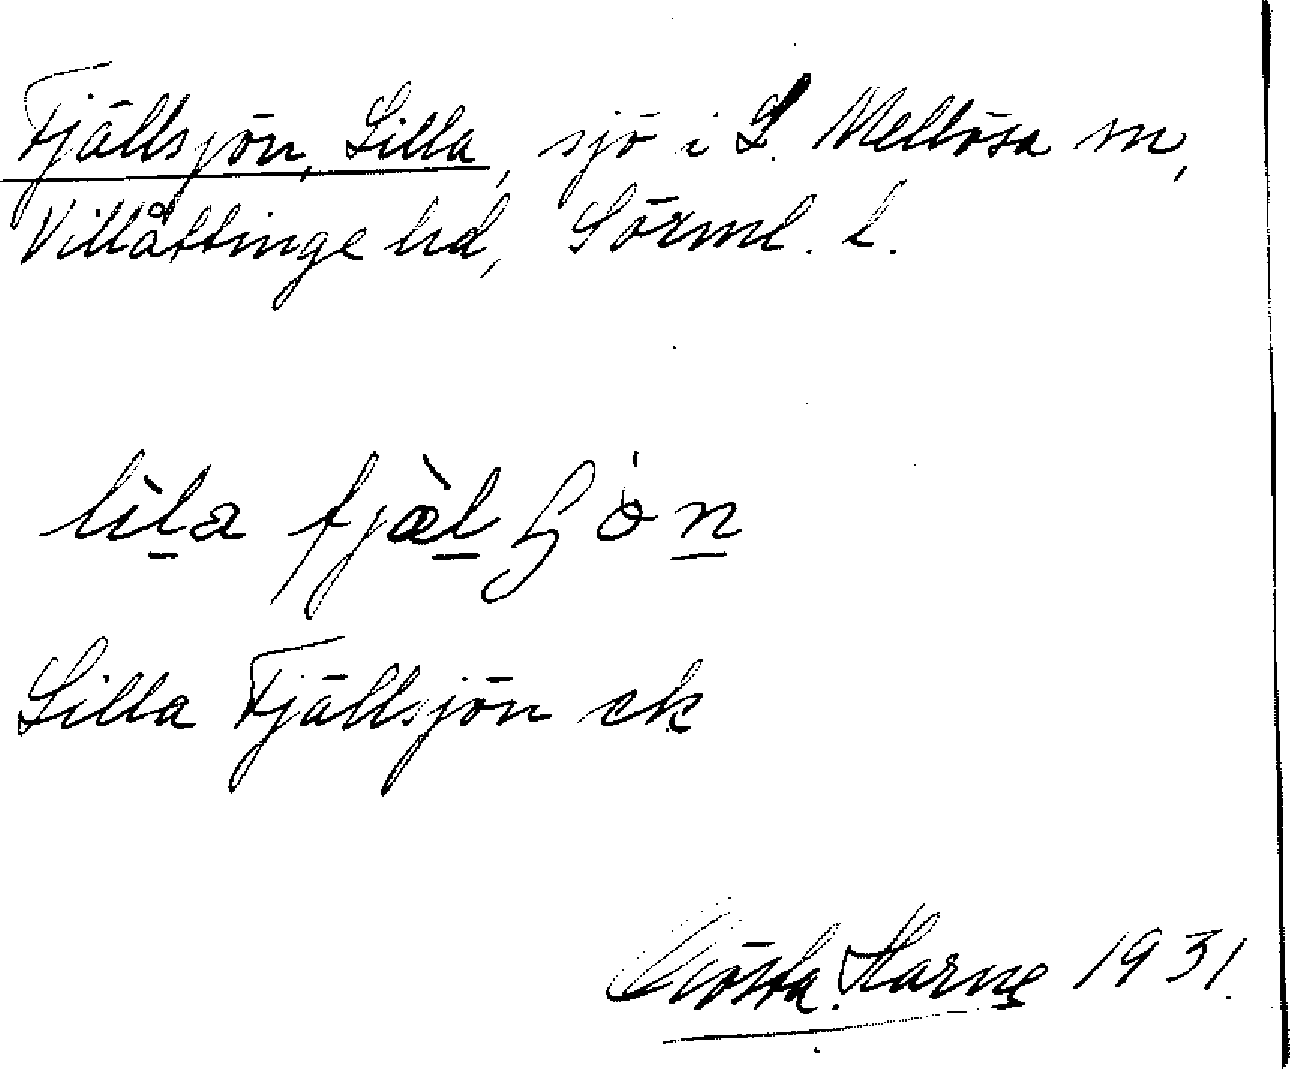 Fjällsjön, Lilla, sjö i L. Mellösa sn,
Villåttinge hd, Sörml. l.
Lilla Fjällsjön ek
Gösta 1931.